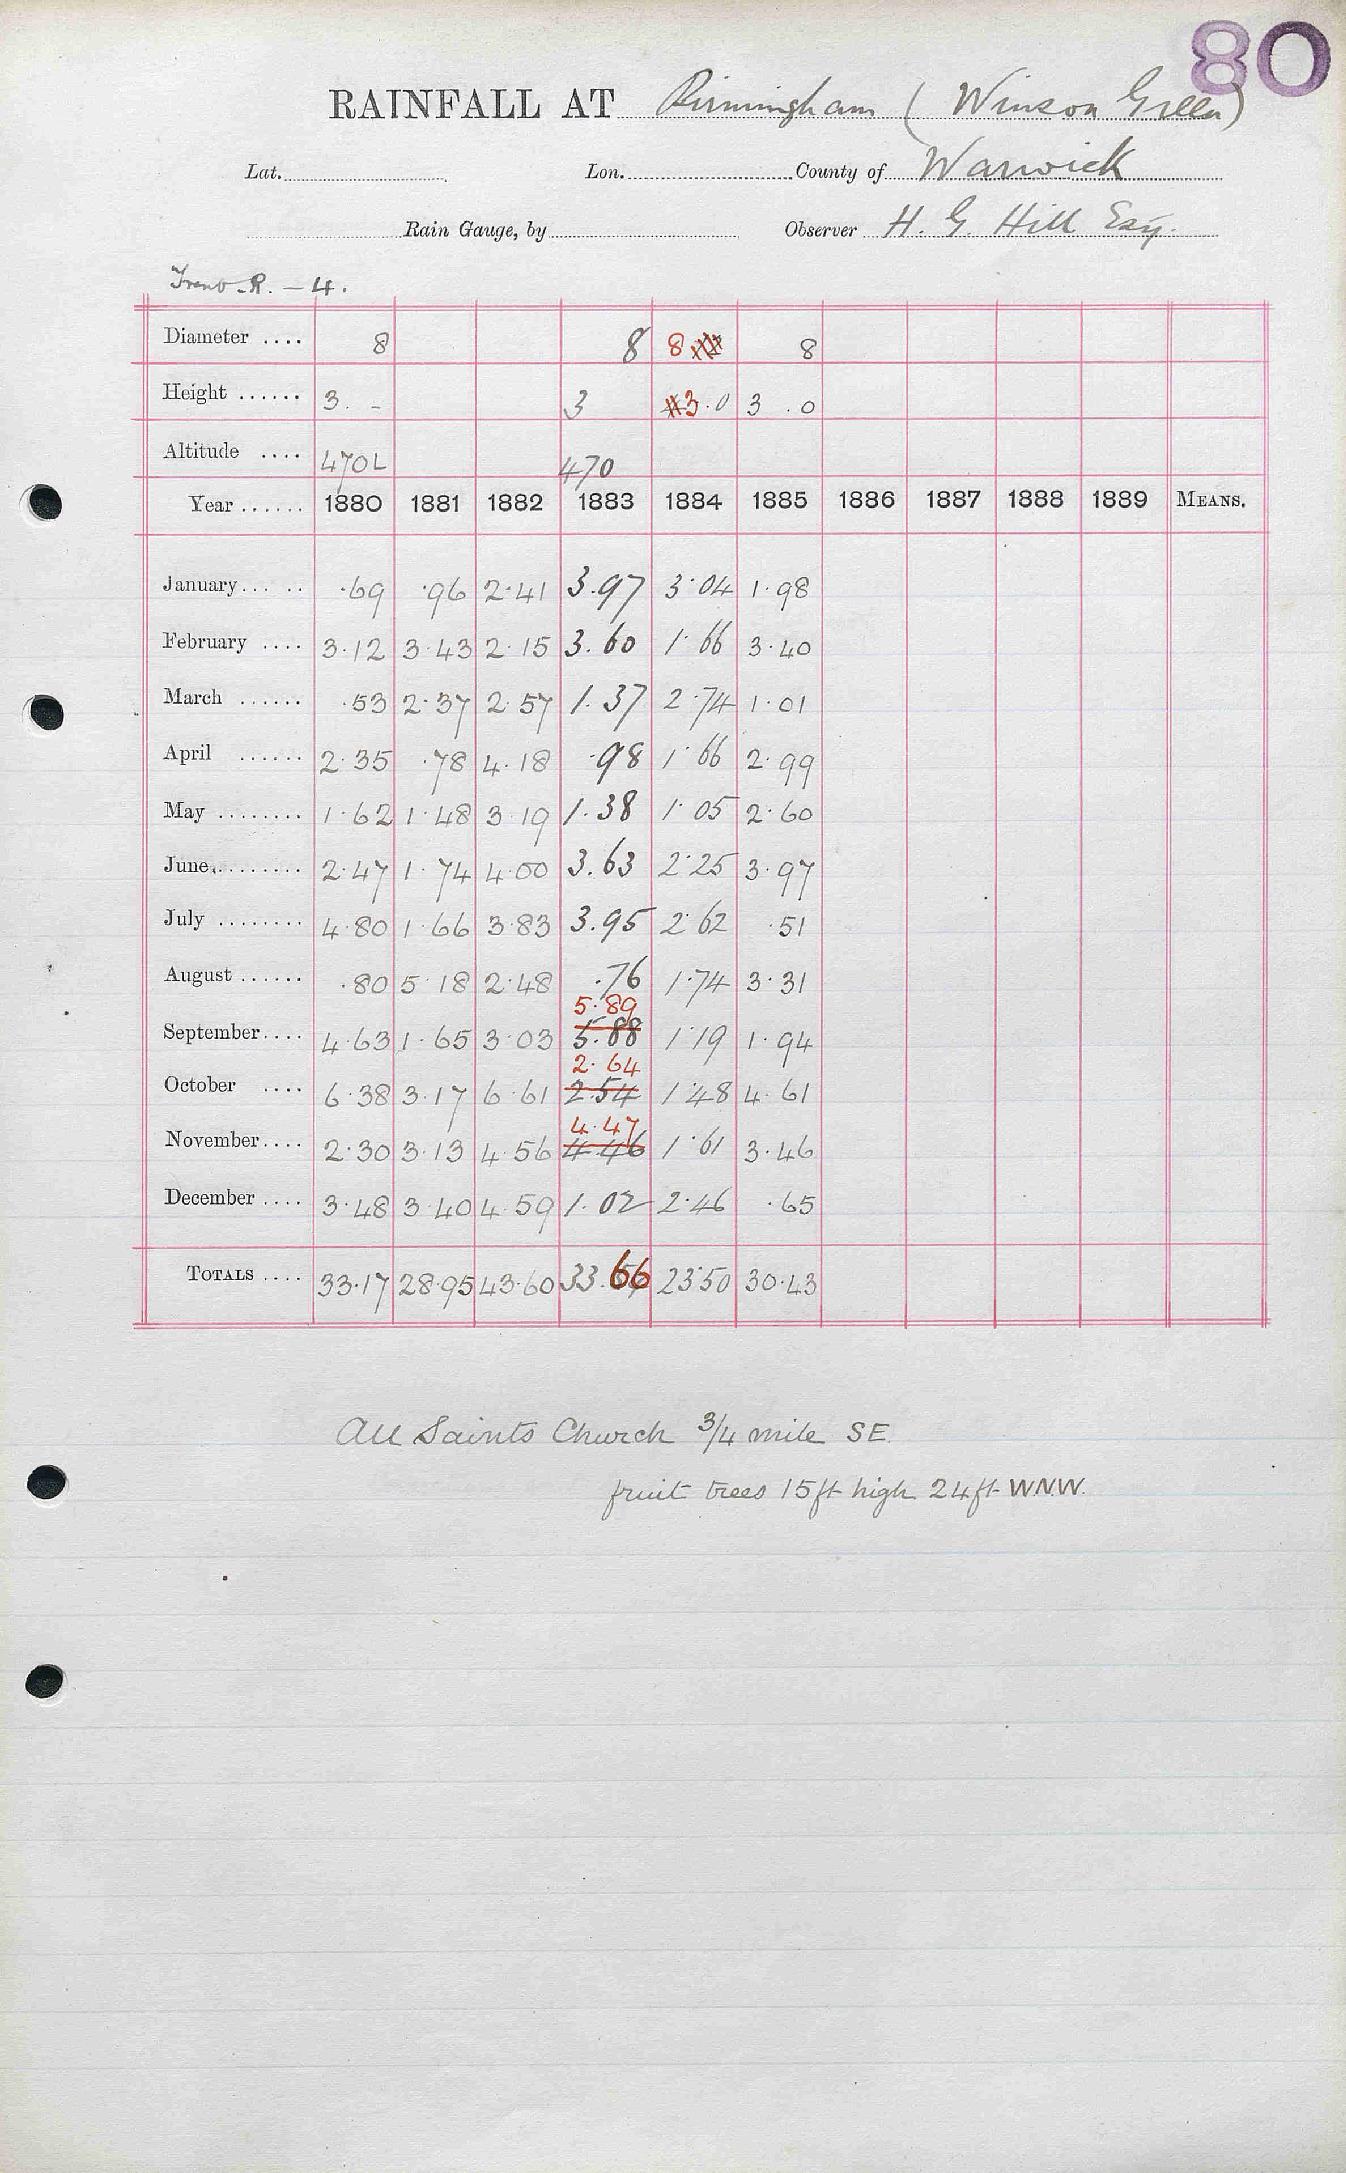 80
RAINFALL AT Birmingham (Winson Green)
Lat. Lon. County of Warwick
Rain Gauge, by Observer H. G. Hill Esq.
R. — 4.
Diameter .... 8 8 8 8
Height ...... 3. - 3 3.0 3.0
Altitude .... 470L 470
Year ...... 1880 1881 1882 1883 1884 1885 1886 1887 1888 1889 MEANS.
January... .. .69 .96 2.41 3.97 3.04 1.98
February .... 3.12 3.43 2.15 3.60 1.66 3.40
March ...... .53 2.37 2.57 1.37 2.74 1.01
April ...... 2.35 .78 4.18 .98 1.66 2.99
May ........ 1.62 1.48 3.19 1.38 1.05 2.60
June ........ 2.47 1.74 4.00 3.63 2.25 3.97
July ........ 4.80 1.66 3.83 3.95 2.62 .51
August ...... .80 5.18 2.48 .76 1.74 3.31
5.89
September.... 4.63 1.65 3.03 5.88 1.19 1.94
2.64
October .... 6.38 3.17 6.61 2.54 1.48 4.61
4.47
November.... 2.30 3.13 4.56 4.46 1.61 3.46
December .... 3.48 3.40 4.59 1.02 2.46 .65
TOTALS .... 33.17 28.95 43.60 33.66 23.50 30.43
All Saints Church 3/4 mile SE.
fruit trees 15ft high 24ft WNW.